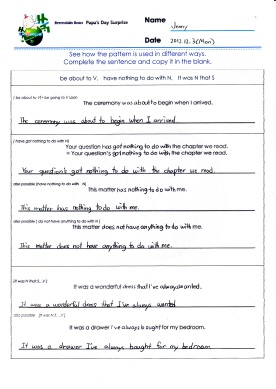 Papa's Day Surprise
Name Jenny
Date 2012.12.3(Mon)
See how the pattern is used in different ways.
Complete the sentence and copy it in the blank.
be about to V, have nothing to do with N, It was N that S
[ be about to V]= be going to V soon
The ceremony was about to begin when I arrived.
The ceremony was about to begin when I arrived.
[ have got nothing to do with N ]
Your question has got nothing to do with the chapter we read.
= Your question's got nothing to do with the chapter we read.
Your question's got nothing to do with the chapter we read.
also possible [have nothing to do with N]
This matter has nothing to do with me.
This matter has nothing to do with me.
also possible [ do not have anything to do with N ]
This matter does not have anything to do with me.
This matter does not have anything to do with me.
It was a wonderful dress that I've always wanted.
It was a wonderful dress that I've always wanted.
also possible
It was a drawer I've always bought for my bedroom.
It was a drawer I've always bought for my bedroom.